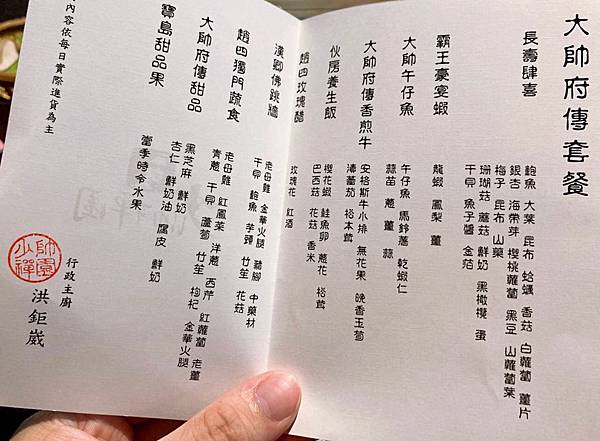 大帥府傳套餐
長壽肆喜
鮑魚 大葉 昆布 蛤蠣 香菇 白蘿蔔 薑片
銀杏 海帶芽 櫻桃蘿蔔 黑豆 山蘿蔔葉
梅子 昆布 山藥
珊瑚菇 蘑菇 鮮奶 黑橄欖 蛋
干貝 魚子醬 金箔
霸王豪宴蝦
龍蝦 鳳梨 薑
大帥午仔魚
午仔魚 馬鈴薯 乾蝦仁
蒜苗 蔥 薑 蒜
大帥府傳香煎牛
安格斯牛小排 無花果 晚香玉筍
蕃茄 松本茸
伙房養生飯
櫻花蝦 鮭魚卵 蔥花 松茸
巴西菇 花菇 香米
趙四玫瑰醋
玫瑰花 紅酒
漢卿佛跳牆
老母雞 金華火腿 豬腳 中藥材
干貝 鮑魚 芋頭 竹笙 花菇
趙四獨門蔬食
老母雞 紅鳳菜 洋蔥 西芹 紅蘿蔔 老薑
青蔥 干貝 蘆筍 竹笙 枸杞 金華火腿
大帥府傳甜品
黑芝麻 鮮奶
杏仁 鮮奶油 腐皮 鮮奶
寶島甜品果
當季時令水果
內容依每日實際進貨為主
行政主廚
洪鉅崴
少帥禪園